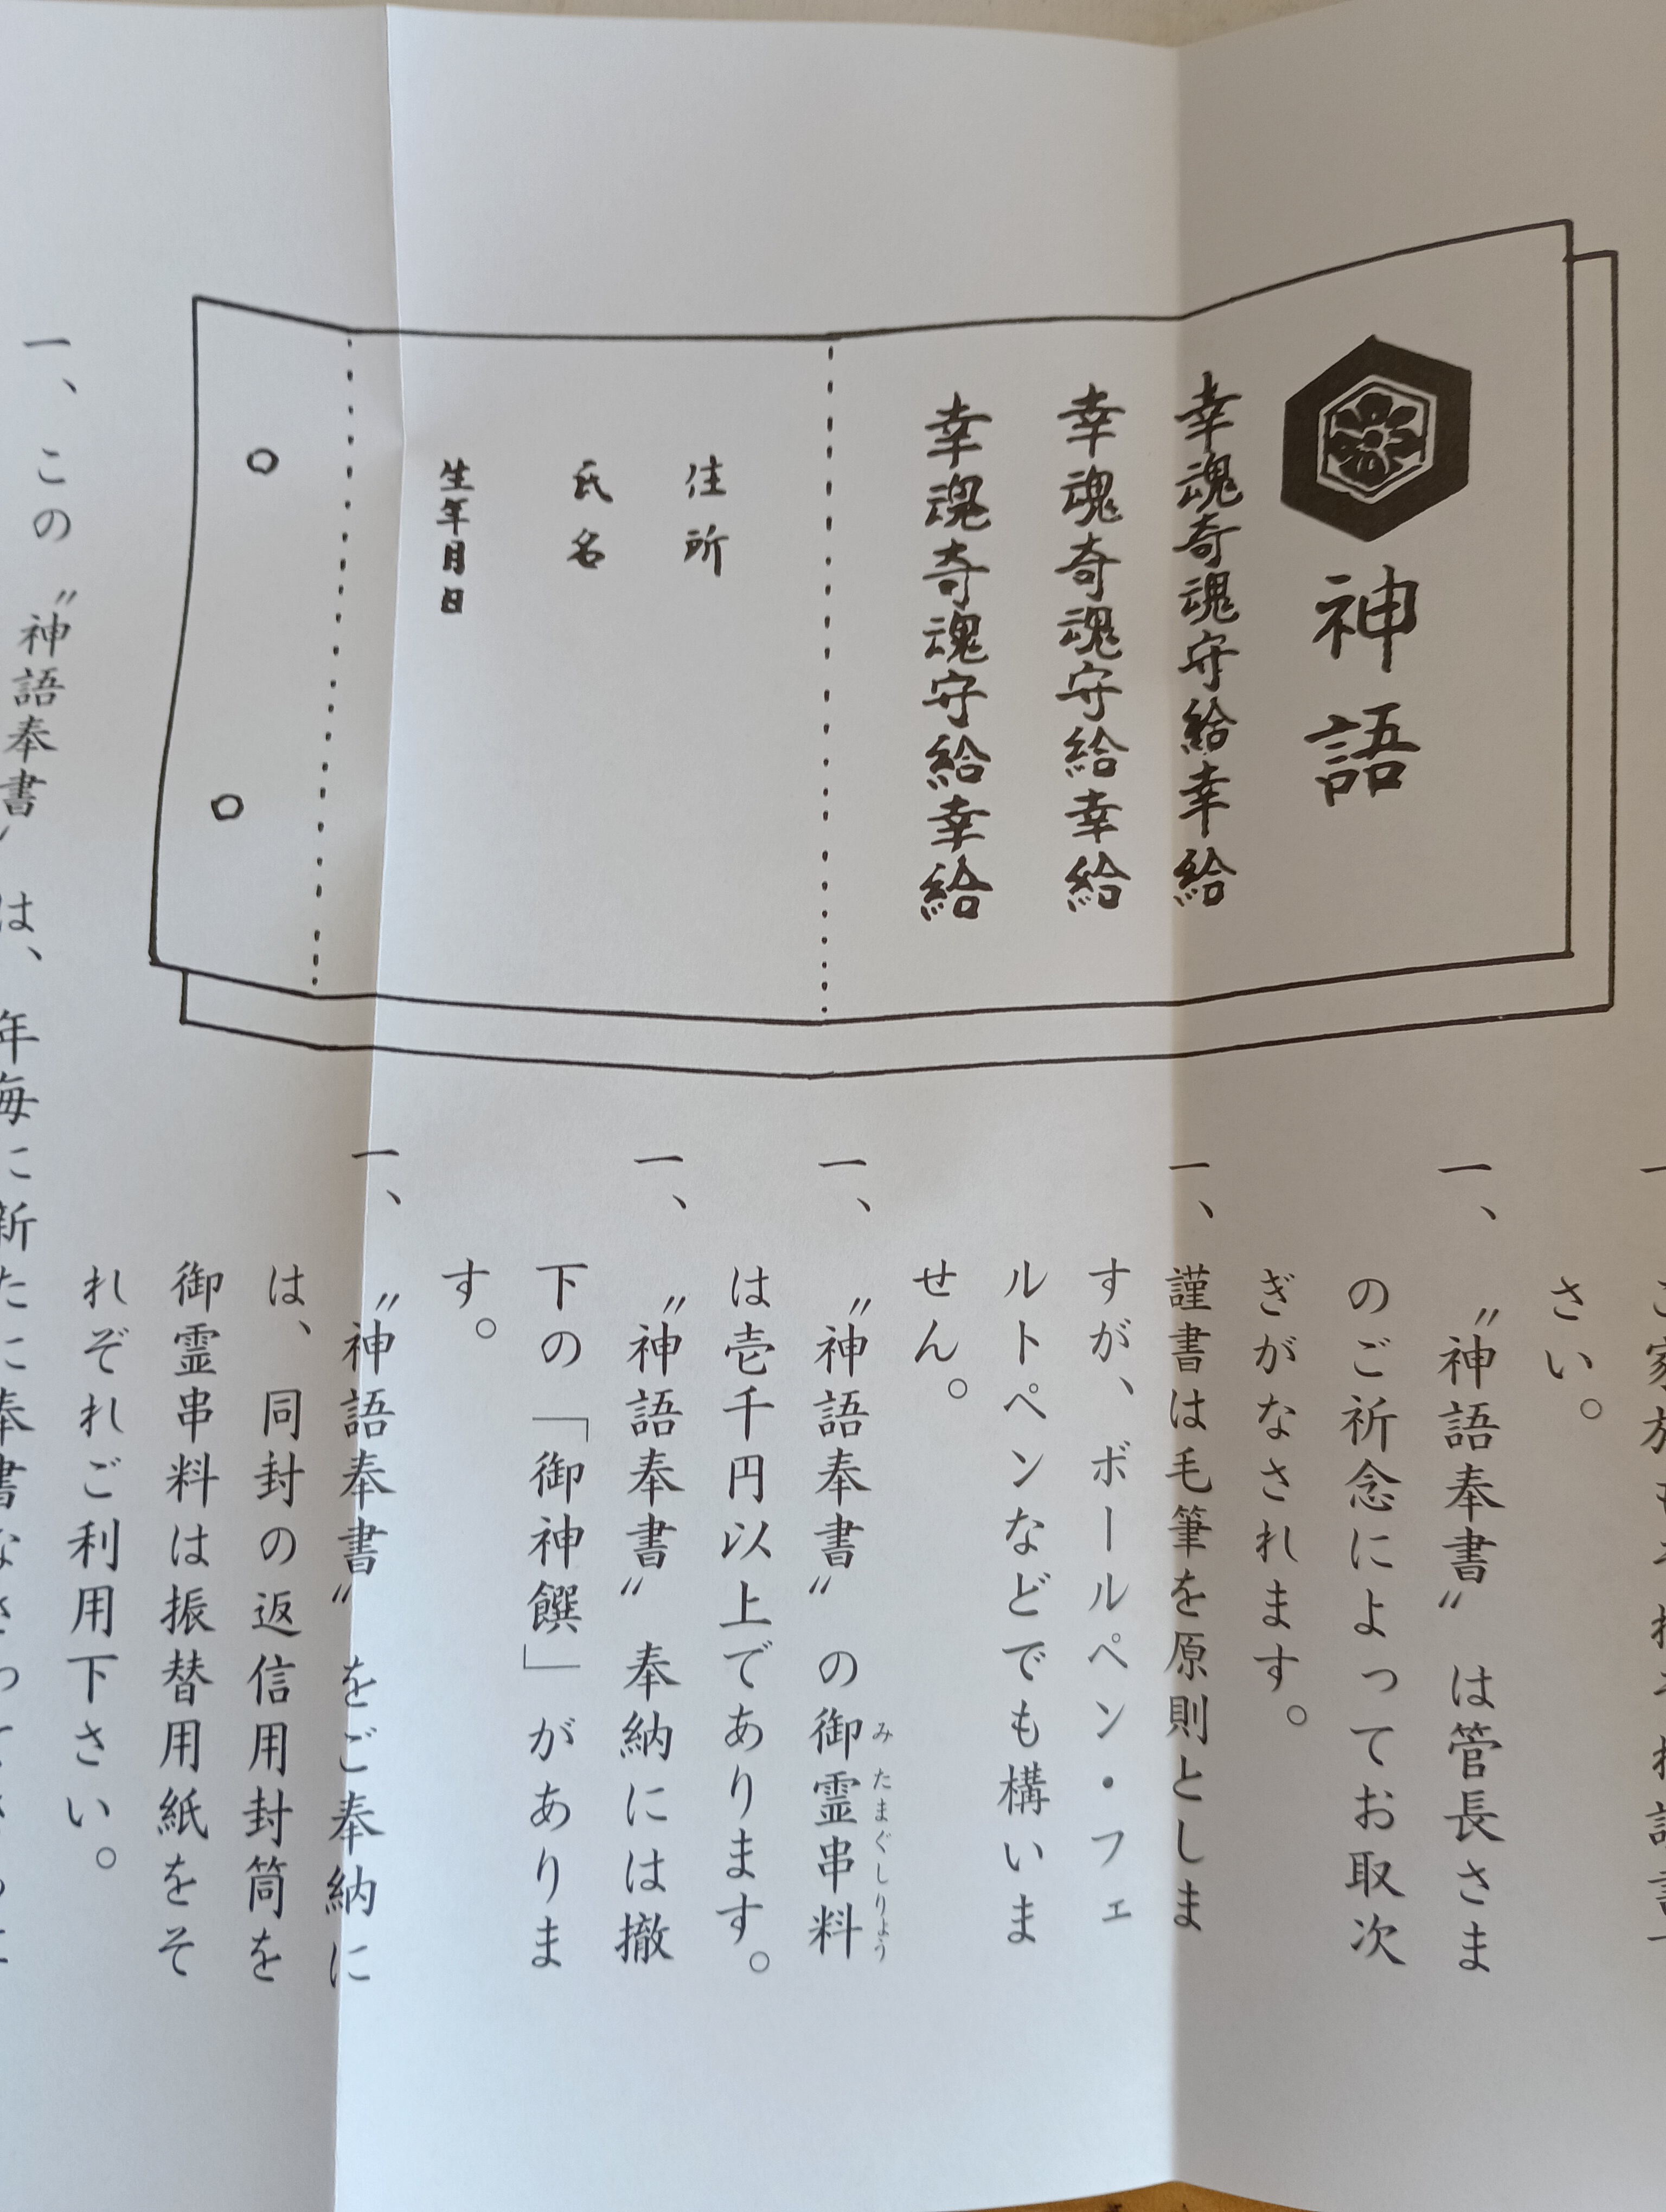 神語
幸魂奇魂守給幸給
幸魂奇魂守給幸給
幸魂奇魂守給幸給
住所
氏名
生年月日
さい。
一、〝神語奉書〟は管長さま
のご祈念によってお取次
ぎがなされます。
一、謹書は毛筆を原則としま
すが、ボールペン・フェ
ルトペンなどでも構いま
せん。
一、〝神語奉書〟の御霊串料
みたまぐしりょう
は壱千円以上であります。
一、〝神語奉書〟奉納には撤
下の「御神饌」がありま
す。
一、〝神語奉書〟をご奉納に
は、同封の返信用封筒を
御霊串料は振替用紙をそ
れぞれご利用下さい。
一、この〝神語奉書〟は、年毎に新たに奉書な